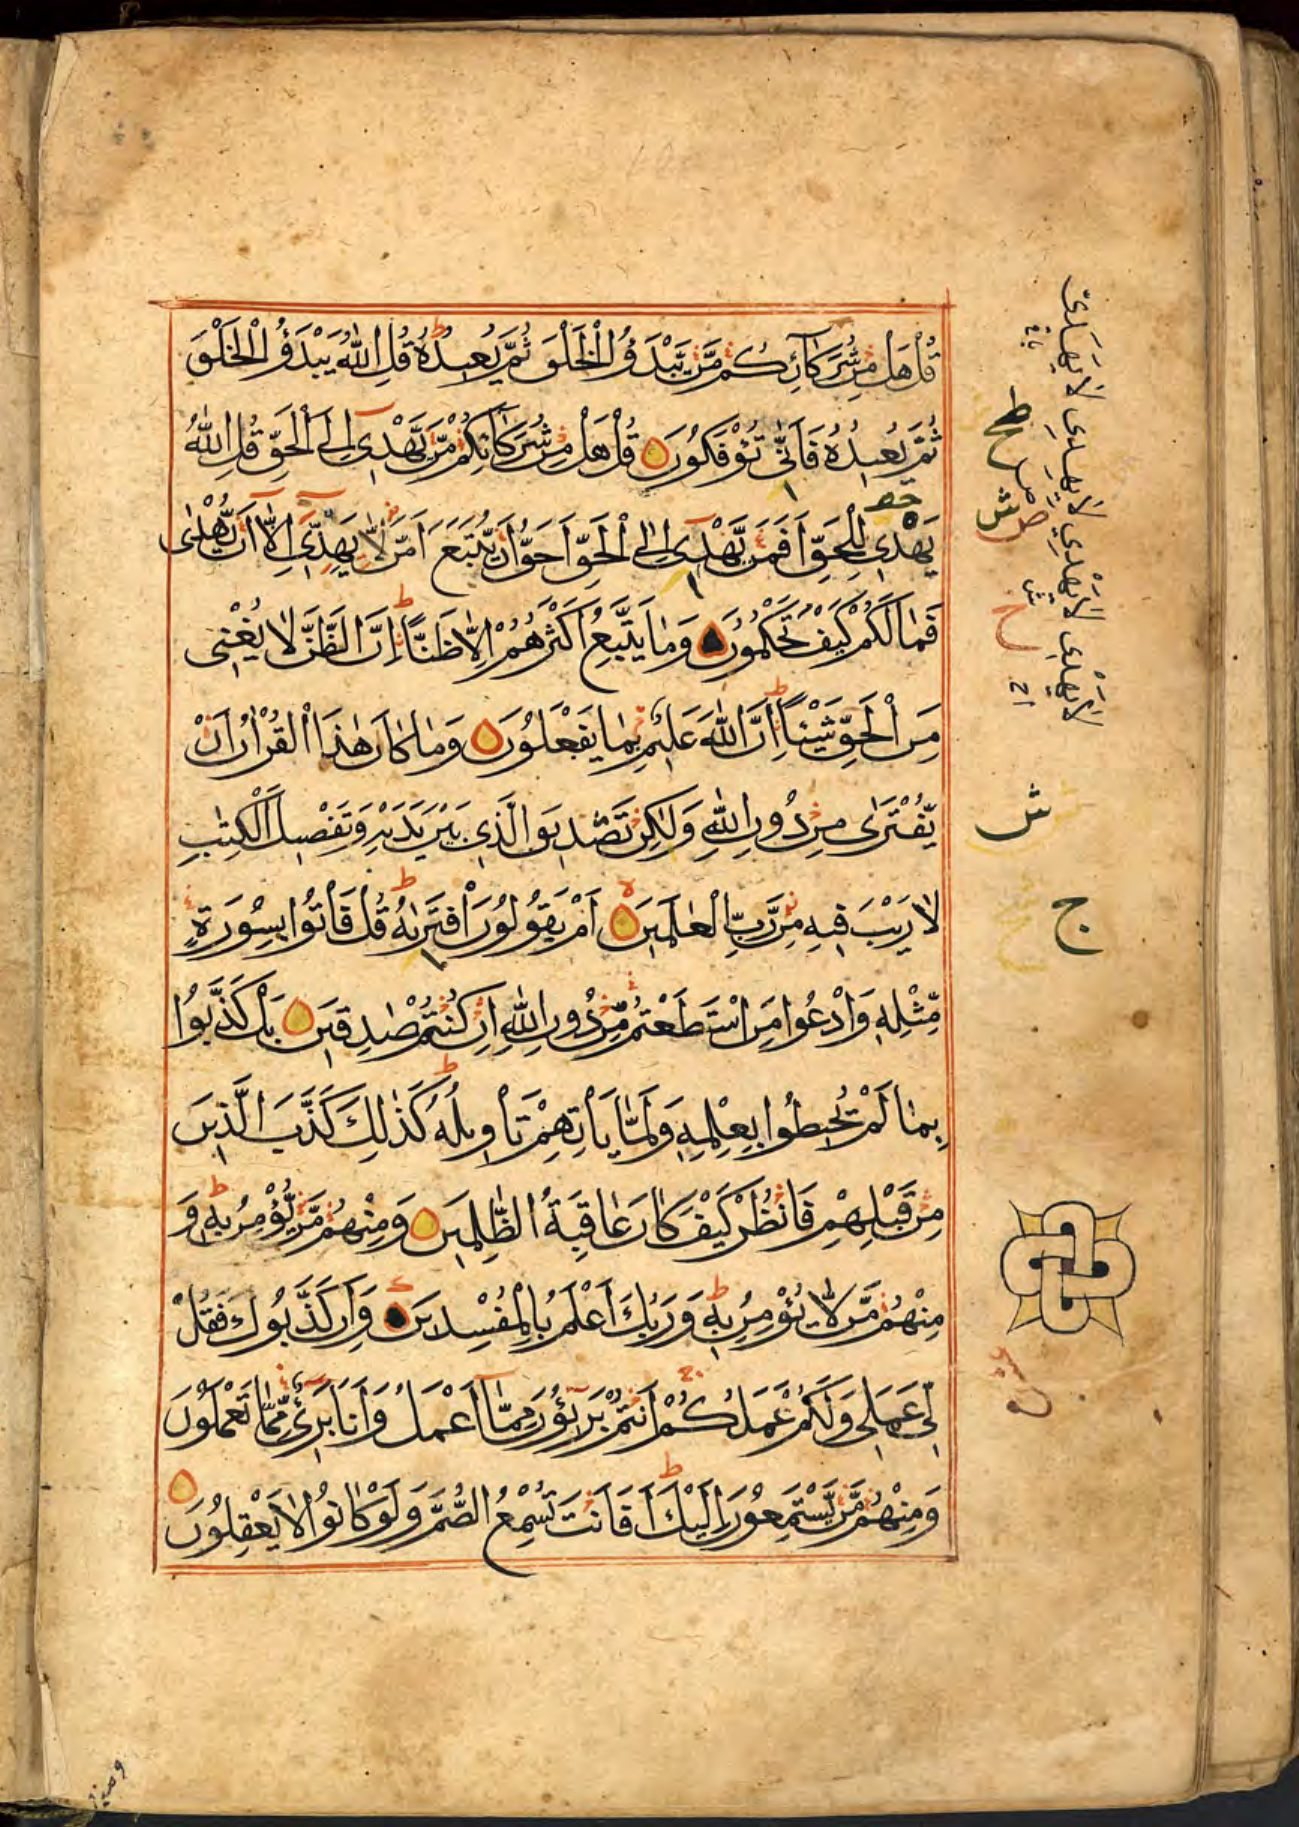 قُلْ هَلْ مِنْ شُرَكَآئِكُمْ مَّنْ يَّبْدَؤُا الْخَلْقَ ثُمَّ يُعِيدُهُ قُلِ اللّٰهُ يَبْدَؤُا الْخَلْقَ
ثُمَّ يُعِيدُهُ فَاَنّٰى تُؤْفَكُوْنَ قُلْ هَلْ مِنْ شُرَكَآئِكُمْ مَّنْ يَّهْدِىٓ اِلَى الْحَقِّ قُلِ اللّٰهُ
يَهْدِى لِلْحَقِّ اَفَمَنْ يَّهْدِىٓ اِلَى الْحَقِّ اَحَقُّ اَنْ يُّتَّبَعَ اَمَّنْ لَّا يَهِدِّىٓ اِلَّآ اَنْ يُّهْدٰى
فَمَا لَكُمْ كَيْفَ تَحْكُمُوْنَ وَمَا يَتَّبِعُ اَكْثَرُهُمْ اِلَّا ظَنًّا اِنَّ الظَّنَّ لَا يُغْنِى
مِنَ الْحَقِّ شَيْئًا اِنَّ اللّٰهَ عَلِيْمٌ بِمَا يَفْعَلُوْنَ وَمَا كَانَ هٰذَا الْقُرْاٰنُ اَنْ
يُّفْتَرٰى مِنْ دُوْنِ اللّٰهِ وَلٰكِنْ تَصْدِيْقَ الَّذِى بَيْنَ يَدَيْهِ وَتَفْصِيْلَ الْكِتٰبِ
لَا رَيْبَ فِيْهِ مِنْ رَّبِّ الْعٰلَمِيْنَ اَمْ يَقُوْلُوْنَ افْتَرٰىهُ قُلْ فَاْتُوْا بِسُوْرَةٍ
مِّثْلِهٖ وَادْعُوْا مَنِ اسْتَطَعْتُمْ مِّنْ دُوْنِ اللّٰهِ اِنْ كُنْتُمْ صٰدِقِيْنَ بَلْ كَذَّبُوْا
بِمَا لَمْ يُحِيْطُوْا بِعِلْمِهٖ وَلَمَّا يَاْتِهِمْ تَاْوِيْلُهُ كَذٰلِكَ كَذَّبَ الَّذِيْنَ
مِنْ قَبْلِهِمْ فَانْظُرْ كَيْفَ كَانَ عَاقِبَةُ الظّٰلِمِيْنَ وَمِنْهُمْ مَّنْ يُّؤْمِنُ بِهٖ وَ
مِنْهُمْ مَّنْ لَّا يُؤْمِنُ بِهٖ وَرَبُّكَ اَعْلَمُ بِالْمُفْسِدِيْنَ وَاِنْ كَذَّبُوْكَ فَقُلْ
لِّى عَمَلِى وَلَكُمْ عَمَلُكُمْ اَنْتُمْ بَرِيْٓئُوْنَ مِمَّآ اَعْمَلُ وَاَنَا بَرِىْٓءٌ مِّمَّا تَعْمَلُوْنَ
وَمِنْهُمْ مَّنْ يَّسْتَمِعُوْنَ اِلَيْكَ اَفَاَنْتَ تُسْمِعُ الصُّمَّ وَلَوْ كَانُوْا لَا يَعْقِلُوْنَ
لَا يَهَدِّىٓ لَا يِهِدِّى لَا يَهِدِّى لَا يَهْدِى
ش
ج